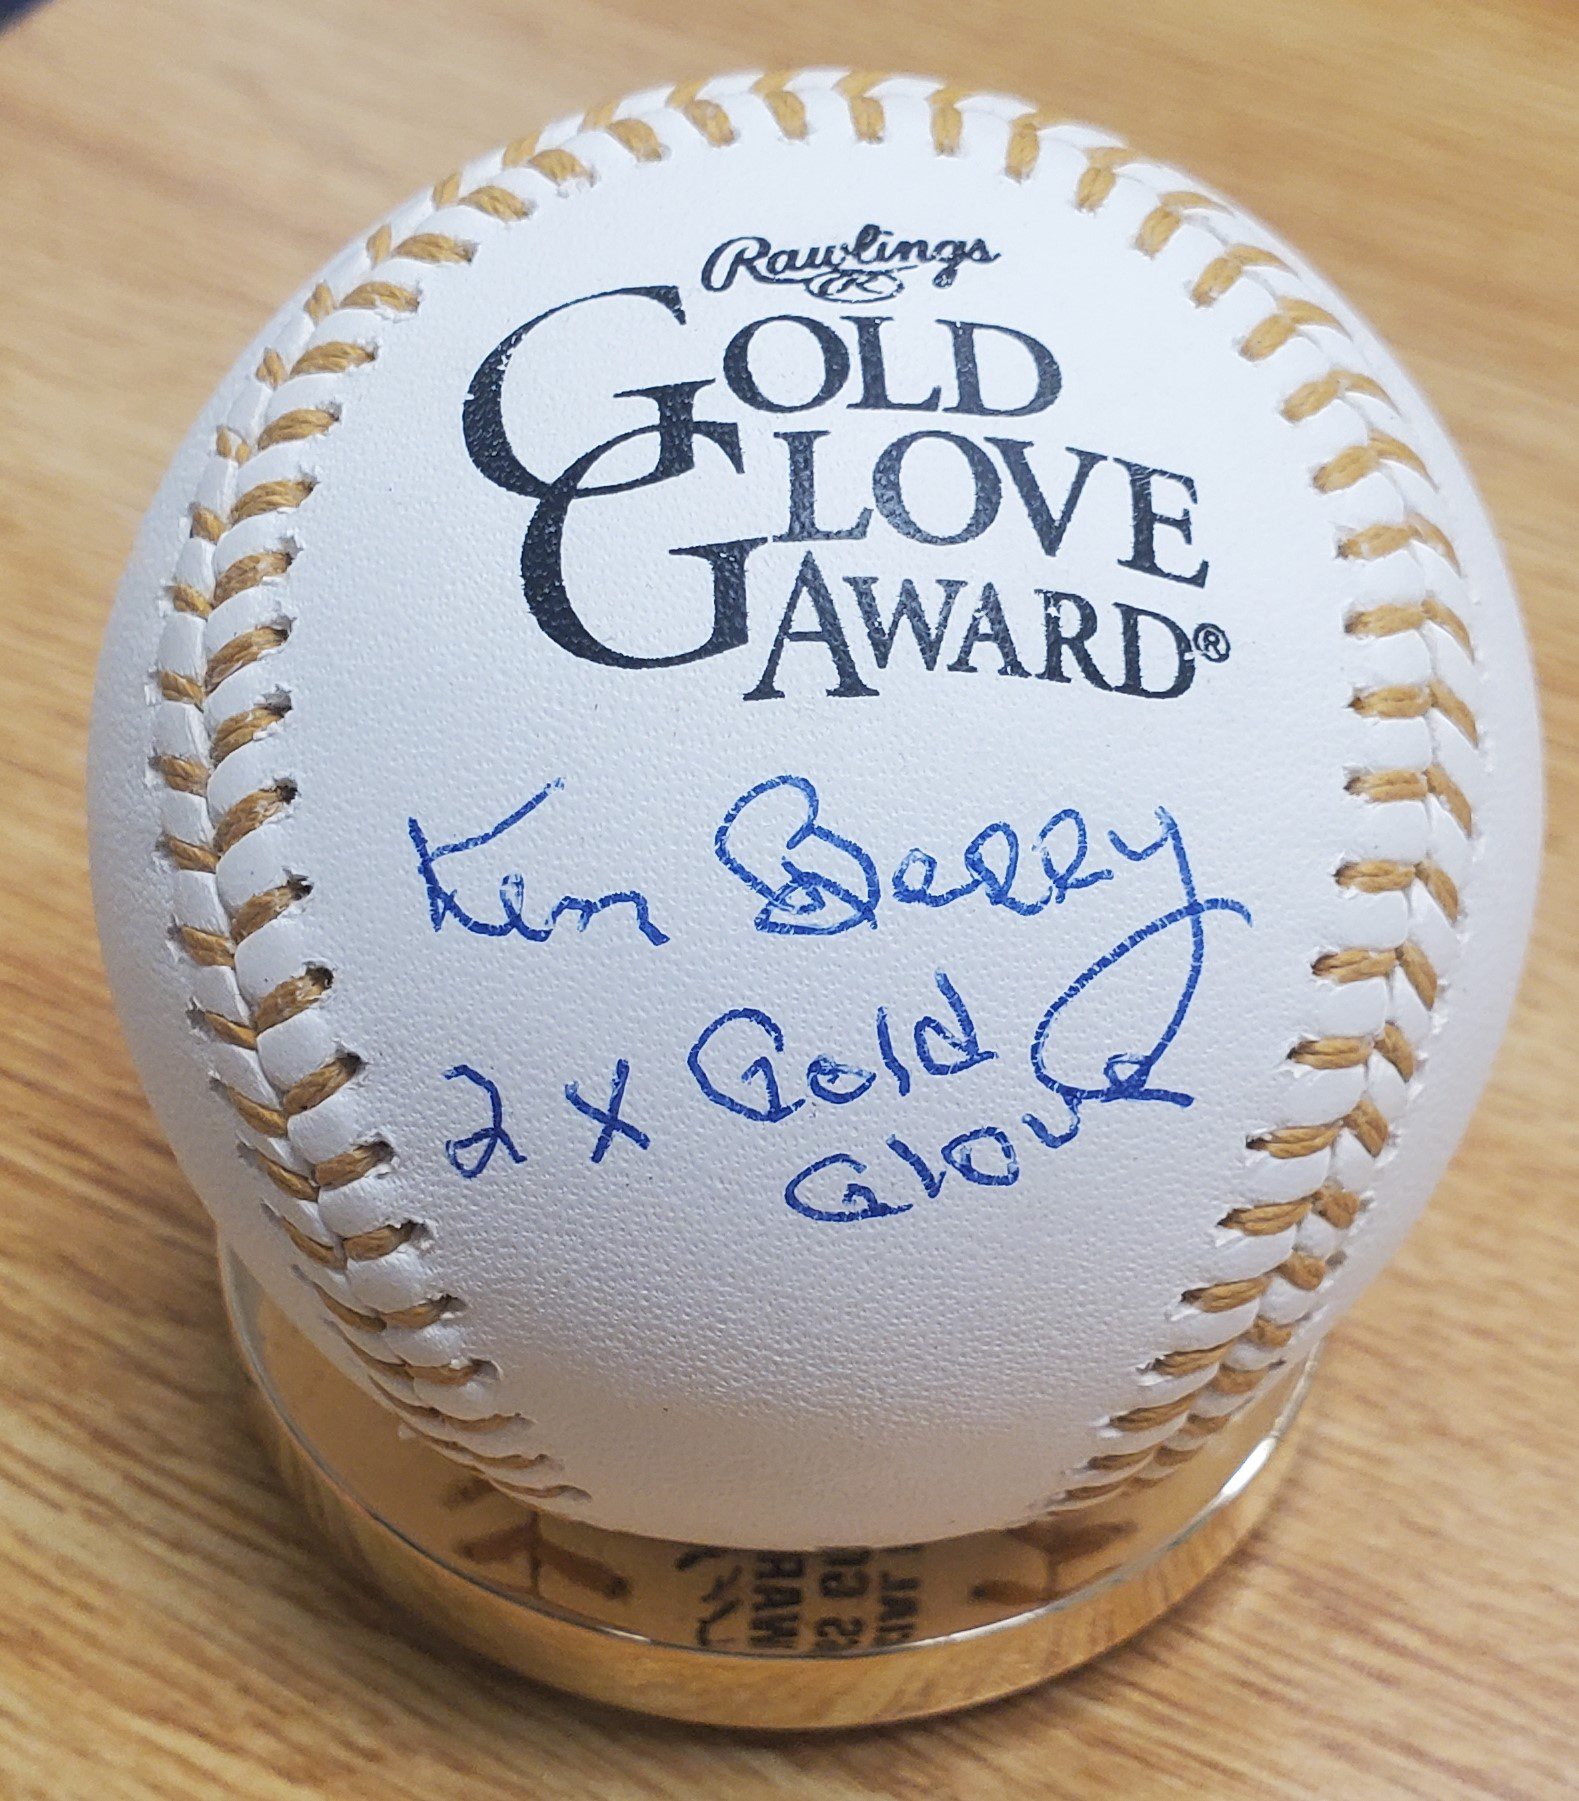 Rawlings
R
GOLD
GLOVE
AWARD®
Ken Berry
2 x Gold
Glove